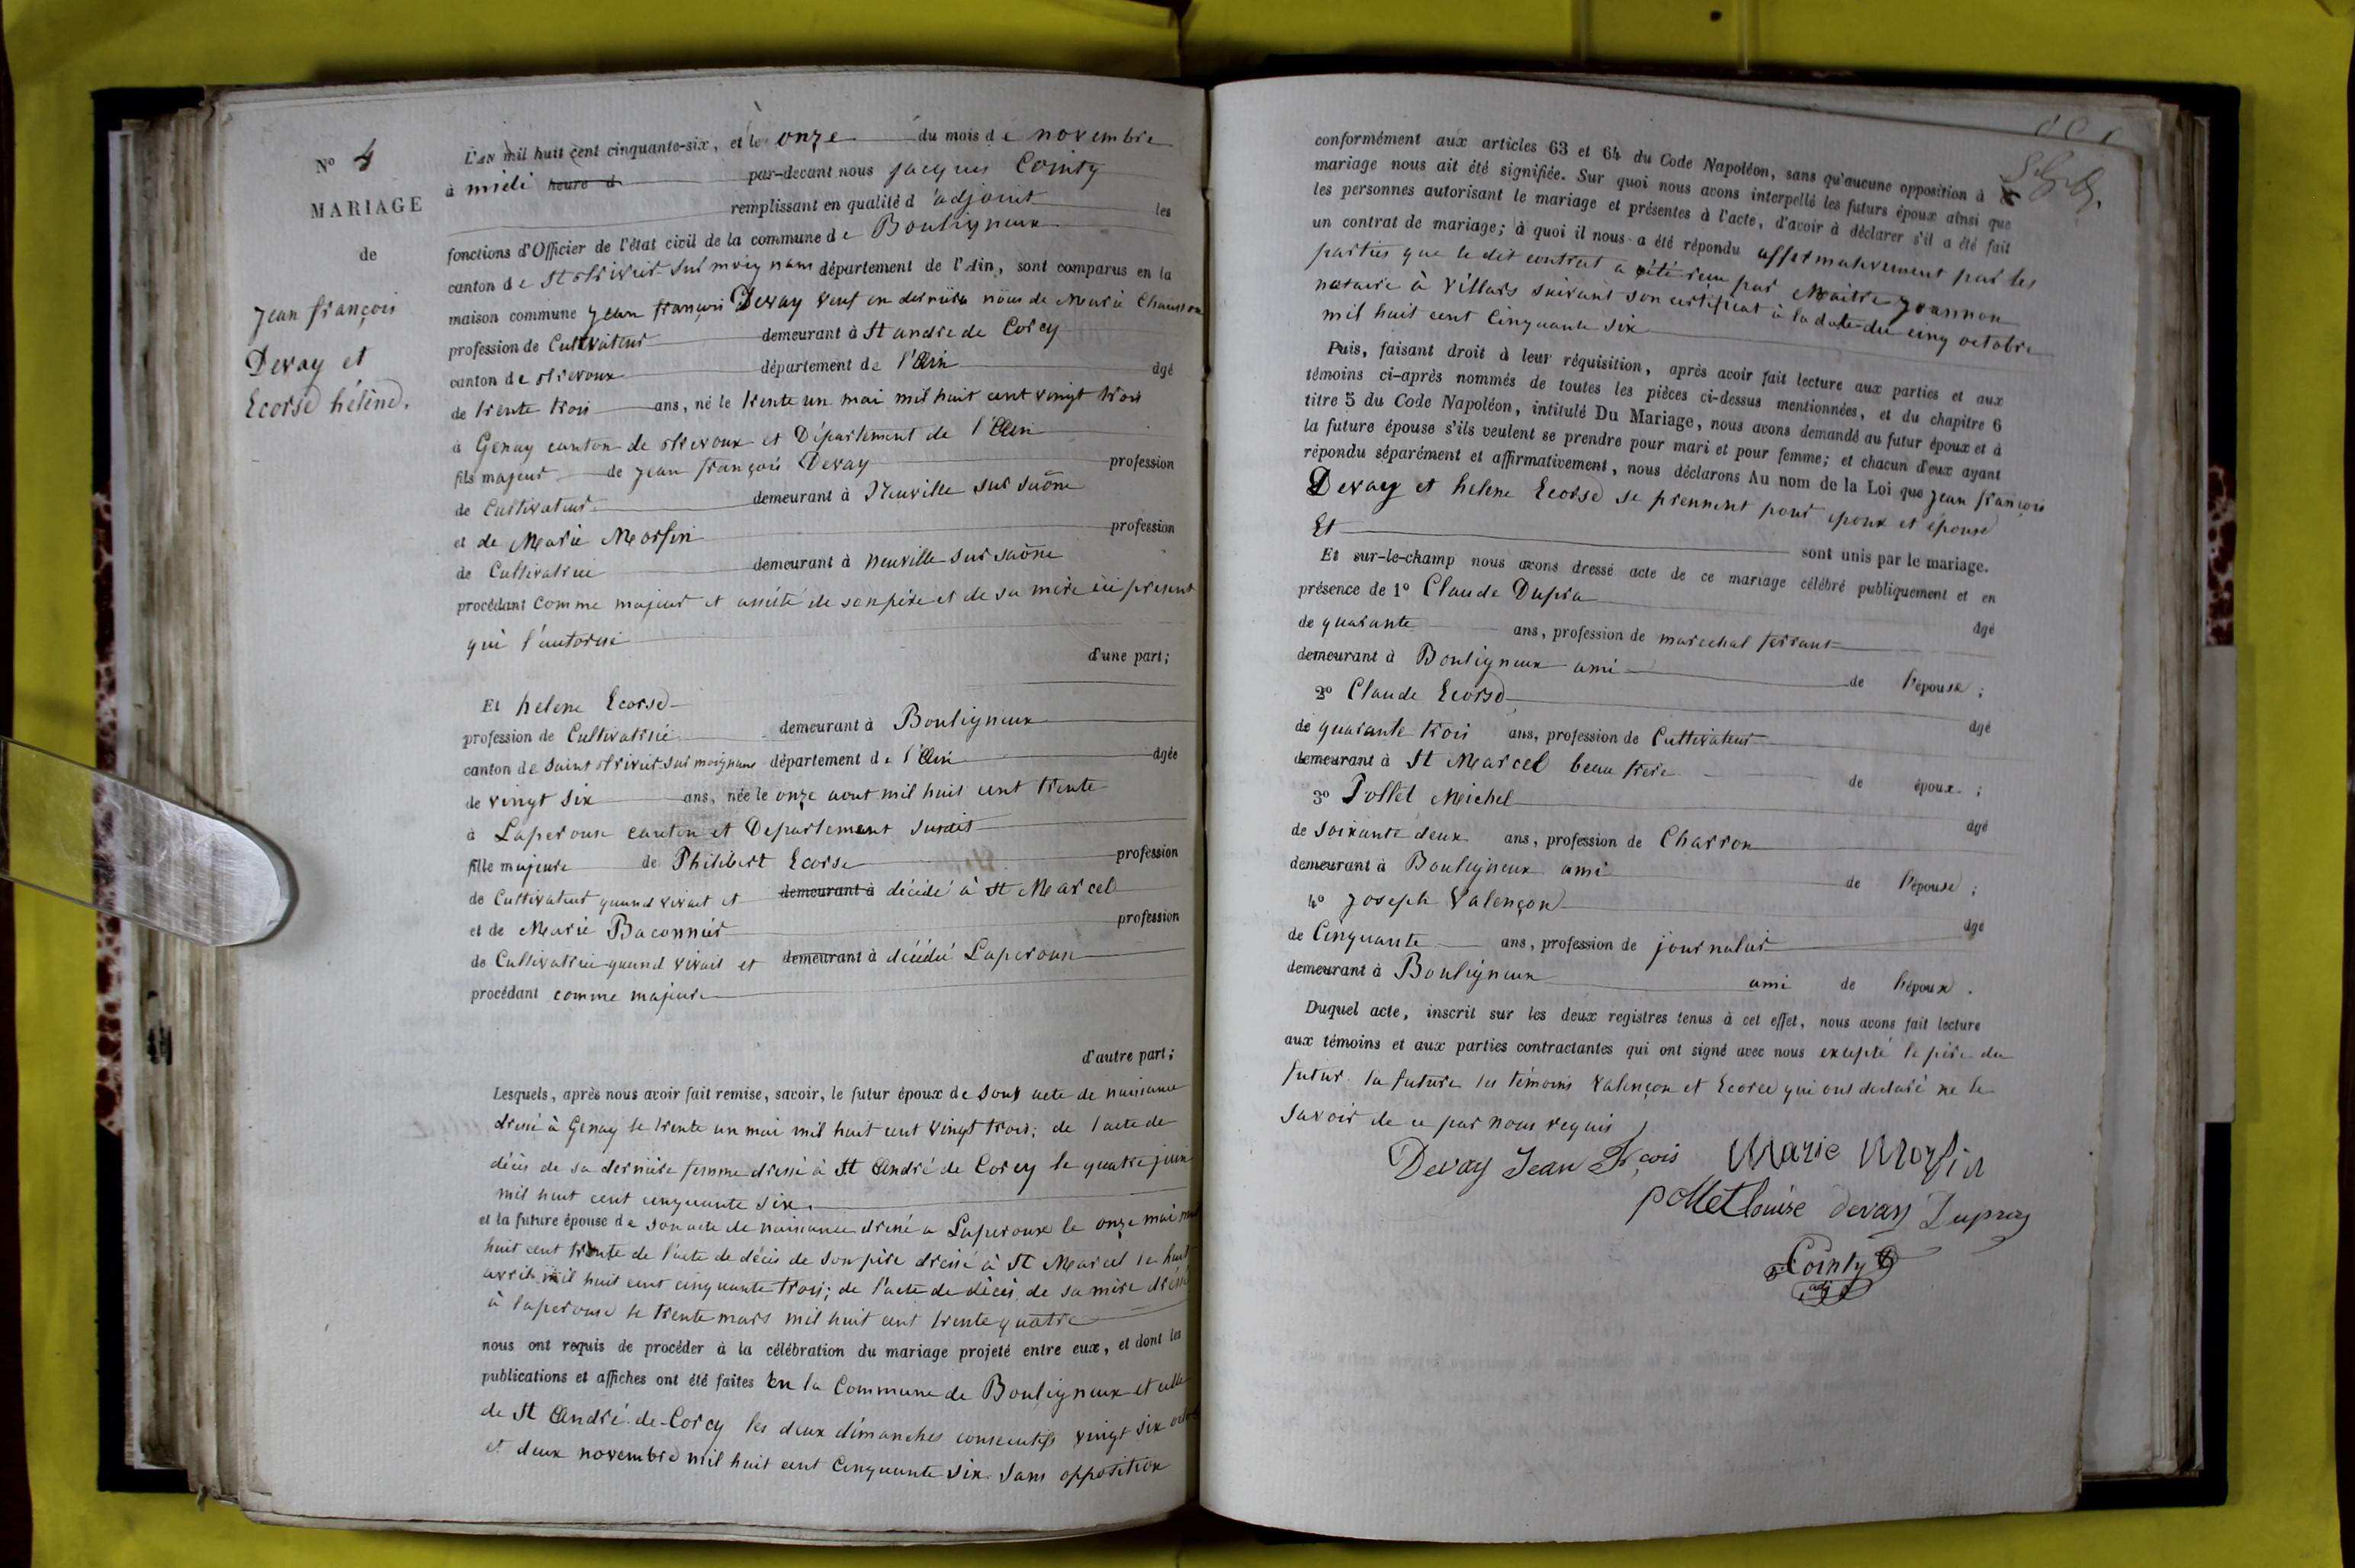 N° 4
MARIAGE
de
Jean françois
Devay et
Ecorse hélène.
L'AN mil huit cent cinquante-six, et le onze du mois de novembre
à midi heure d par-devant nous jacques Cointy
remplissant en qualité d'adjoint les
fonctions d'Officier de l'état civil de la commune de Bouligneux
canton de St trivier sur moignans département de l'Ain, sont comparus en la
maison commune jean françois Devay veuf en dernière nöus de Marie
profession de Cultivateur demeurant à St andre de Corcy
canton de trevoux département de l'Ain âgé
de trente trois ans, né le trente un mai mil huit cent vingt trois
à Genay canton de trevoux et Département de l'Ain
fils majeur de jean françois Devay profession
de Cultivateur demeurant à Neuville sur saône
et de Marie Morfin profession
de Cultivatrice demeurant à neuville sur saône
procédant comme majeur et assisté de son père et de sa mère ici présent
qui l'autorise
d'une part;
Et helene Ecorse
profession de Cultivatrice demeurant à Bouligneux
canton de saint trivier sur moignans département de l'Ain âgée
de vingt six ans, née le onze aout mil huit cent trente
à Laperouse canton et Departement susdit
fille majeure de Philibert Ecorse profession
de Cultivateur quand vivait et demeurant à décédé à St Marcel
et de Marie Baconnier profession
de Cultivatrice quand vivait et demeurant à décédée Laperouse
procédant comme majeure
d'autre part;
Lesquels, après nous avoir fait remise, savoir, le futur époux de son acte de naissance
dressé à Genay le trente un mai mil huit cent vingt trois; de l'acte de
décès de sa dernière femme dressé à St André de Corcy le quatre juin
mil huit cent cinquante six.
et la future épouse de son acte de naissance dressé a Laperouse le onze mai mil
huit cent trente de l'acte de décès de son père dressé à St Marcel le huit
avril mil huit cent cinquante trois; de l'acte de décès de sa mère dressé
à laperouse le trente mars mil huit cent trente quatre
nous ont requis de procéder à la célébration du mariage projeté entre eux, et dont les
publications et affiches ont été faites En la Commune de Bouligneux et celle
de St André de Corcy les deux dimanches consecutifs vingt six
et deux novembre mil huit cent Cinquante six sans opposition
conformément aux articles 63 et 64 du Code Napoléon, sans qu'aucune opposition à
mariage nous ait été signifiée. Sur quoi nous avons interpellé les futurs époux ainsi que
les personnes autorisant le mariage et présentes à l'acte, d'avoir à déclarer s'il a été fait
un contrat de mariage; à quoi il nous a été répondu affirmativement par les
parties que le dit contrat a été reçu par Maître Joannon
notaire à Villars suivant son certificat à la date du cinq octobre
mil huit cent Cinquante six
Puis, faisant droit à leur réquisition, après avoir fait lecture aux parties et aux
témoins ci-après nommés de toutes les pièces ci-dessus mentionnées, et du chapitre 6
titre 5 du Code Napoléon, intitulé Du Mariage, nous avons demandé au futur époux et à
la future épouse s'ils veulent se prendre pour mari et pour femme; et chacun d'eux ayant
répondu séparément et affirmativement, nous déclarons Au nom de la Loi que jean françois
Devay et helene Ecorse se prennent pour epoux et épouse
Et sont unis par le mariage.
Et sur-le-champ nous avons dressé acte de ce mariage célébré publiquement et en
présence de 1° Claude Dupra
âgé
de quarante ans, profession de marechal ferrant
demeurant à Bouligneux ami de l'épouse;
2° Claude Ecorse
âgé
de quarante trois ans, profession de Cultivateur
demeurant à St Marcel beau frere de époux;
3° Pollet Michel
âgé
de soixante deux ans, profession de Charron
demeurant à Bouligneux ami de l'épouse;
4° joseph Valençon
âgé
de Cinquante ans, profession de journalier
demeurant à Bouligneux ami de l'époux.
Duquel acte, inscrit sur les deux registres tenus à cet effet, nous avons fait lecture
aux témoins et aux parties contractantes qui ont signé avec nous excepté le père du
futur la future les témoins Valençon et Ecorce qui ont declaré ne le
savoir de ce par nous requis
Devay Jean Fçois Marie Morfin
pollet louise devay Dupray
Cointy
adj